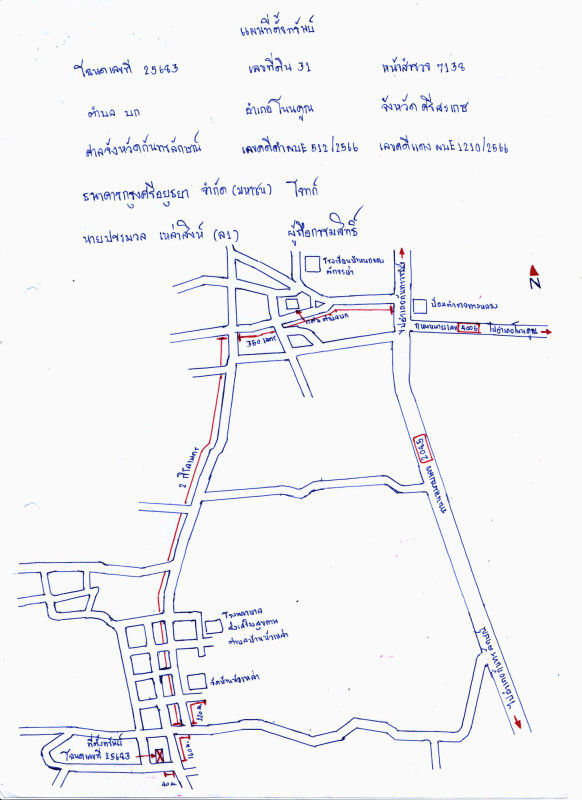 แผนที่ตั้งทรัพย์
โฉนดเลขที่ 25683 เลขที่ดิน 31 หน้าสำรวจ 7138
ตำบล บก อำเภอโนนคูณ จังหวัด ศรีสะเกษ
ศาลจังหวัดกันทรลักษณ์ เลขคดีดำ ผบE 512/2566 เลขคดีแดง ผบE 1210/2566
ธนาคารกรุงศรีอยุธยา จำกัด (มหาชน) โจทก์
นายประมวล เหล่าสิงห์ (ล1) ผู้ถือกรรมสิทธิ์
โรงเรียนบ้านบก
N
ไปอำเภอกันทรารมย์
ป้อมตำรวจทางหลวง
ถนนหมายเลข 4006 ไปอำเภอโนนคูณ
ตำบลบก
350 เมตร
2085
ถนนหมายเลข
2 กิโลเมตร
โรงพยาบาล
ส่งเสริมสุขภาพ
ตำบลบ้านหัวเหล่า
วัดบ้านหัวเหล่า
220 ม.
ไปอำเภอกันทรลักษณ์
ที่ตั้งทรัพย์
โฉนดเลขที่ 25683
160 ม.
40 ม.